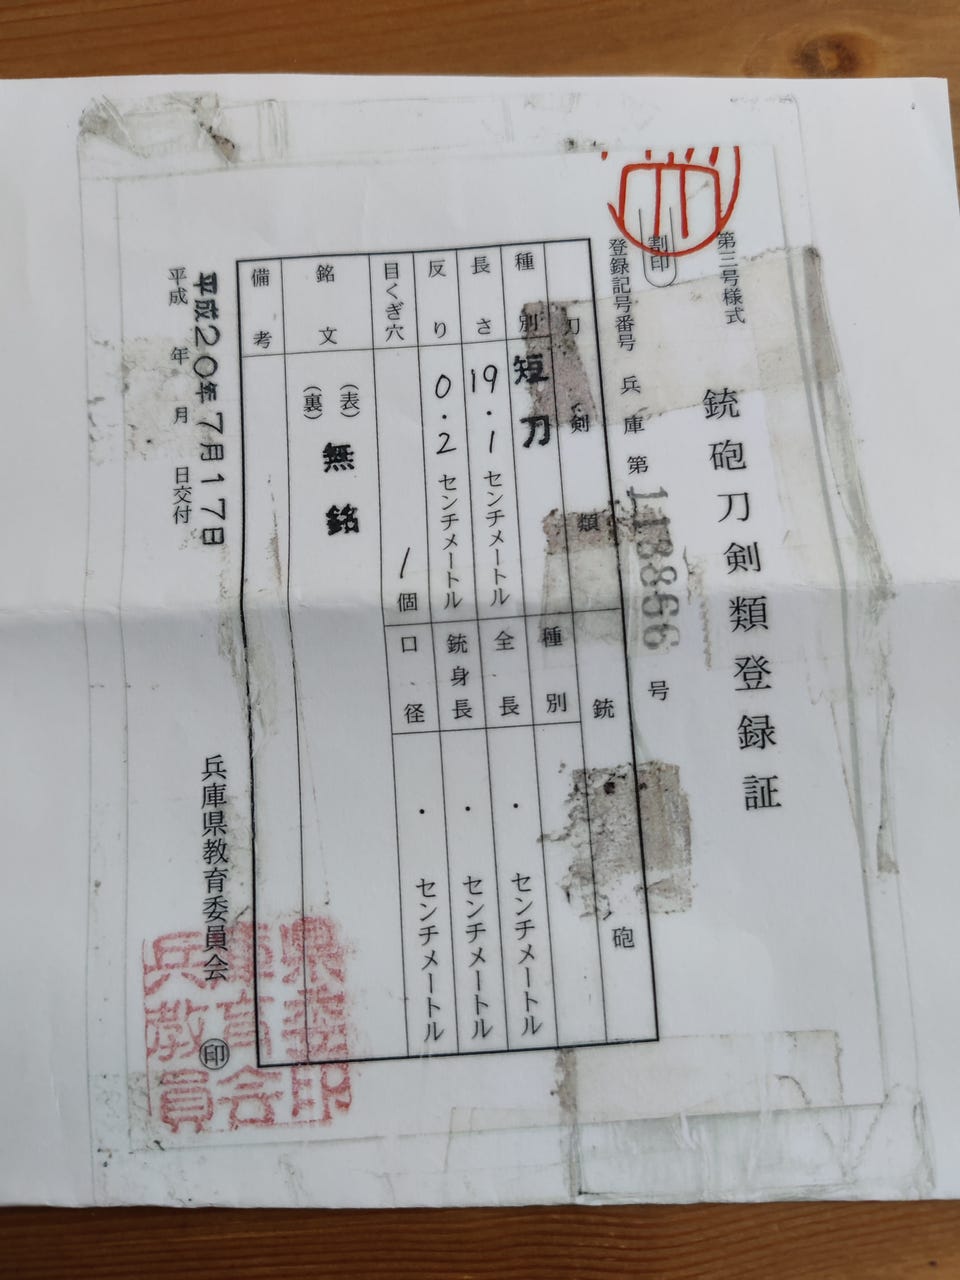 第三号様式
銃砲刀剣類登録証
割印
登録記号番号 兵庫 第 113866 号
刀剣類
種別 短刀
長さ 19.1センチメートル
反り 0.2センチメートル
目くぎ穴 1個
銘文 (表)
(裏)
無銘
備考
銃砲
種別
全長 ・ センチメートル
銃身長 ・ センチメートル
口径 ・ センチメートル
平成20年7月17日
平成 年 月 日交付
兵庫県教育委員会 印
兵庫県
教育委
員会印